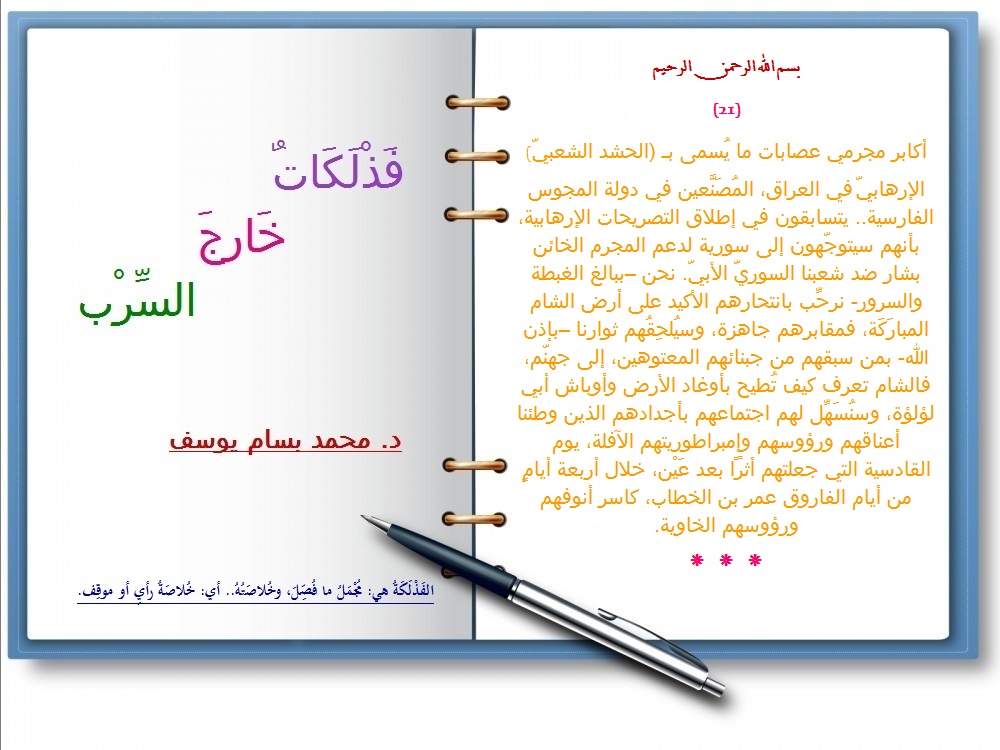 بسم الله الرحمن الرحيم
(21)
أكابر مجرمي عصابات ما يُسمى بـ (الحشد الشعبيّ)
الإرهابيّ في العراق، المُصَنَّعين في دولة المجوس
الفارسية.. يتسابقون في إطلاق التصريحات الإرهابية،
بأنهم سيتوجّهون إلى سورية لدعم المجرم الخائن
بشار ضد شعبنا السوريّ الأبيّ. نحن –ببالغ الغبطة
والسرور- نرحِّب بانتحارهم الأكيد على أرض الشام
المبارَكَة، فمقابرهم جاهزة، وسيُلحِقُهم ثوارنا –بإذن
الله- بمن سبقهم من جبنائهم المعتوهين، إلى جهنّم،
فالشام تعرف كيف تُطيح بأوغاد الأرض وأوباش أبي
لؤلؤة، وسنُسَهِّل لهم اجتماعهم بأجدادهم الذين وطئنا
أعناقهم ورؤوسهم وإمبراطوريتهم الآفلة، يوم
القادسية التي جعلتهم أثرًا بعد عَيْن، خلال أربعة أيامٍ
من أيام الفاروق عمر بن الخطاب، كاسر أنوفهم
ورؤوسهم الخاوية.
* * *
فَذْلَكَاتٌ
خَارِجَ
السِّرْب
د. محمد بسام يوسف
الفَذْلَكَةُ هي: مُجْمَلُ ما فُصِّلَ، وخُلاصَتُهُ.. أي: خُلاصَةُ رأيٍ أو موقِف.